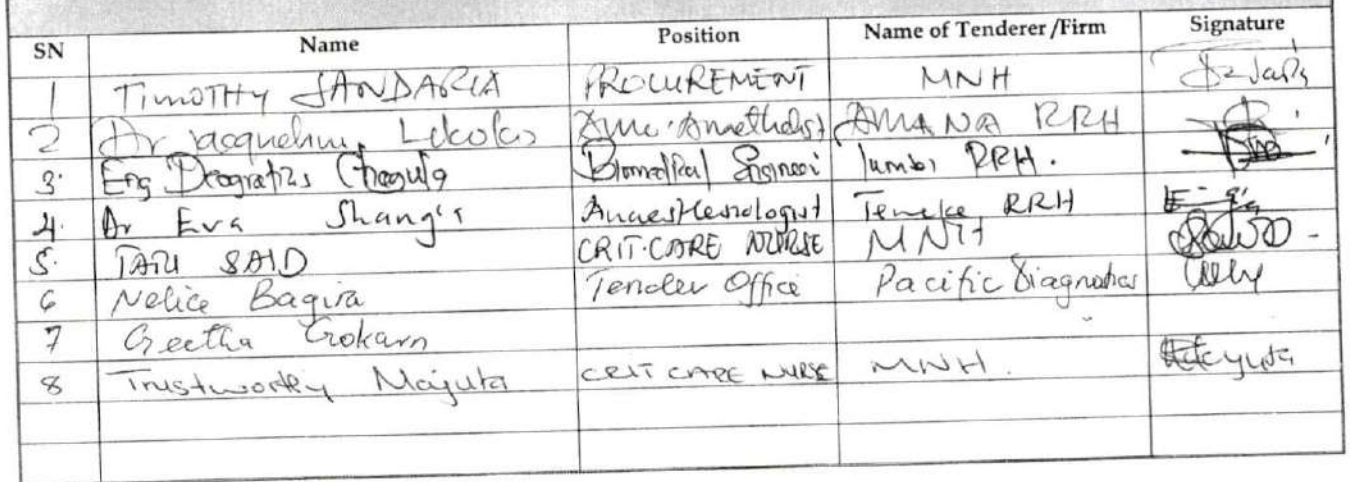 SN Name Position Name of Tenderer/Firm Signature
1 TIMOTHY JANDARIA PROCUREMENT MNH
2 Dr Jacqueline AMANA RRH
3. Eng Deogratias Chagula Biomedical Engineer Tumbi RRH.
4. Dr Eva Shang'a Anaesthesiologist Temeke RRH
5. TATU SAID CRIT.CARE NURSE MNH
6 Nelice Bagira Tender Office Pacific Diagnostics
7 Geetha Gokarn
8 Trustworthy Majuta CRIT CARE NURSE MNH.